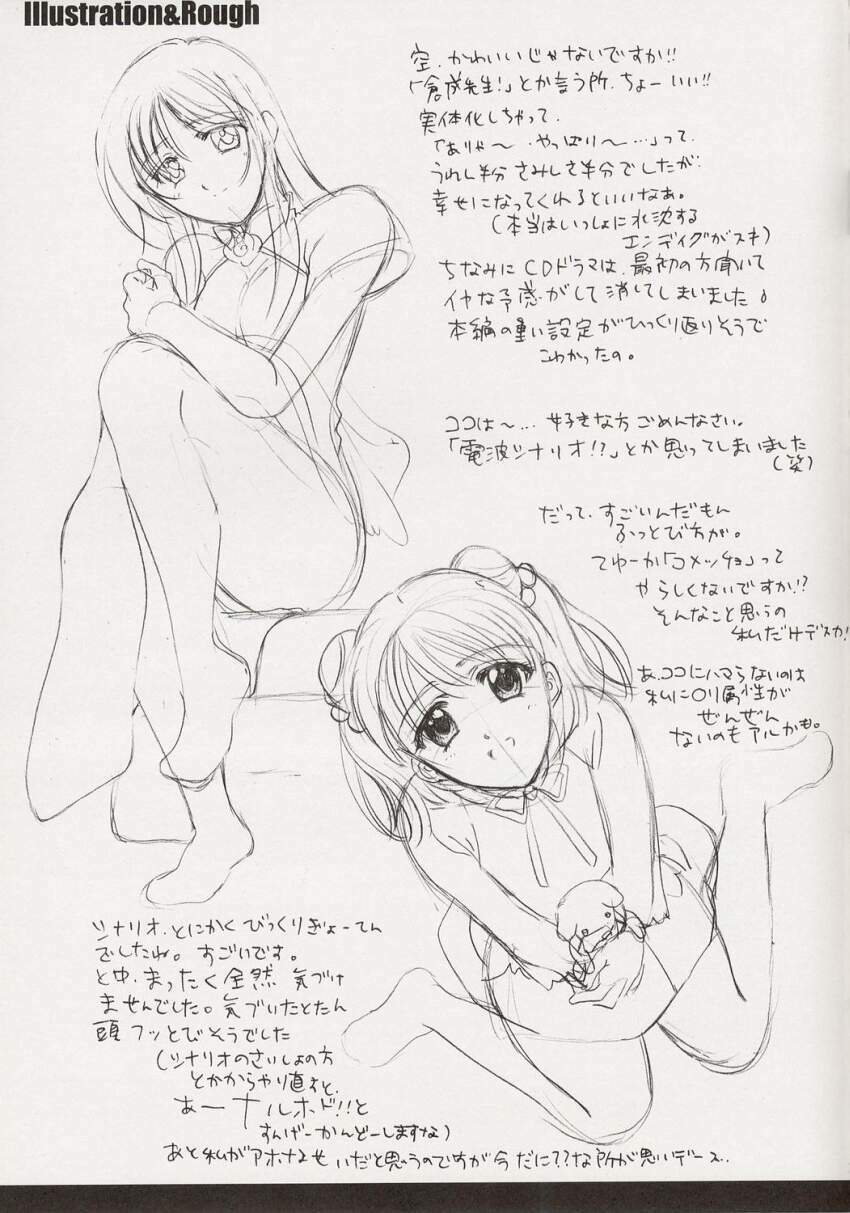 Illustration&Rough
空、かわいいじゃないですか!!
「倉成先生!」とか言う所、ちょーいい!!
実体化しちゃって、
「ありゃ〜、やっぱり〜…」って、
うれし半分さみしさ半分でしたが、
幸せになってくれるといいなぁ。
(本当はいっしょに水沈する
エンディグがスキ)
ちなみにCDドラマは、最初の方聞いて
イヤな予感がして消してしまいました。
本編の重い設定がひっくり返りそうで
こわかったの。
ココは〜…好きな方ごめんなさい。
「電波シナリオ!?」とか思ってしまいました
(笑)
だって、すごいんだもん
ふっとび方が。
てゆーか「コメッチョ」って
やらしくないですか!?
そんなこと思うの
私だけデスカ!
あ、ココにハマらないのは
私にロリ属性が
ぜんぜん
ないのもアルかも。
シナリオ、とにかくびっくりぎょーてん
でしたね。すごいです。
と中、まったく全然気づけ
ませんでした。気づいたとたん
頭フッとびそうでした
(シナリオのさいしょの方
とかからやり直すと、
あーナルホド!!と
すんげーかんどーしますな)
あと私がアホなせいだと思うのですが今だに??な所が